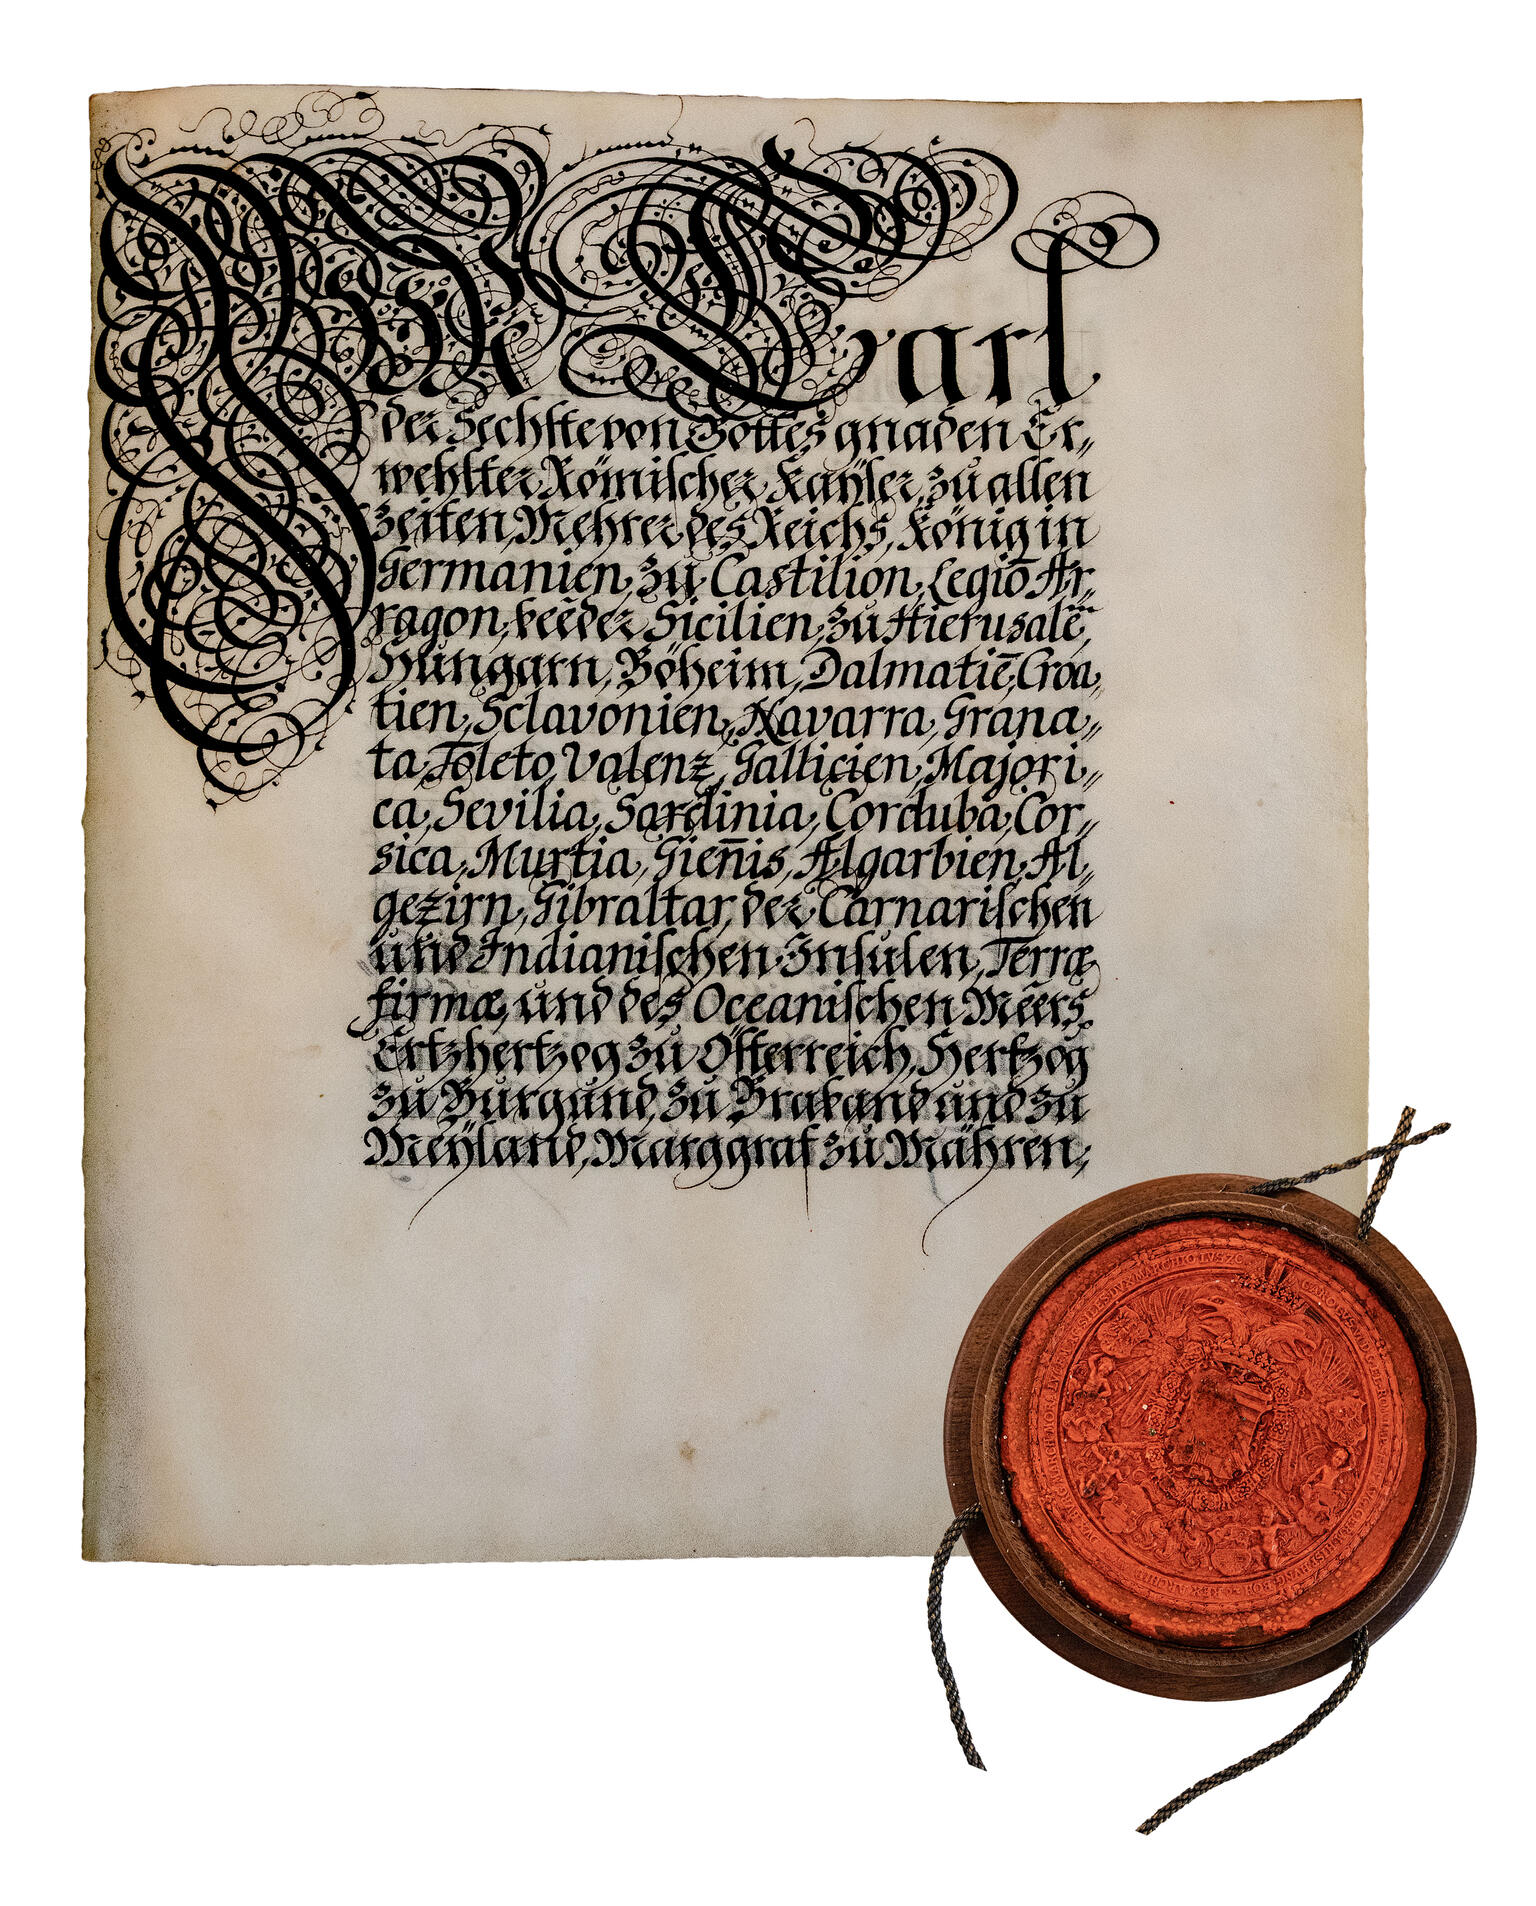 Wir Carl
der Sechste von Gottes gnaden Er„
wehlter Römischer Kaÿser, zu allen
zeiten, Mehrer des Reichs, König in
Germanien, zu Castilion, Legiō Ar„
ragon, beeder Sicilien, zu Hierusalē,
Hungarn, Böheim, Dalmatiē, Croa„
tien, Sclavonien, Navarra, Grana„
ta, Toleto, Valenz, Gallicien, Majori„
ca, Sevilia, Sardinia, Corduba, Cor„
sica, Murtia, Gien̄is, Algarbien, Al„
gezirn, Gibraltar, der Carnarischen
und Indianischen Insulen, Terræ
firmæ, und des Oceanischen Meers.
Ertzhertzog zu Österreich, Hertzog
zu Burgund, zu Braband und zu
Meÿland, Marggraf zu Mähren,
CAROLVS VI D G EL ROM
HISP HVNG BOH REX ARCHID